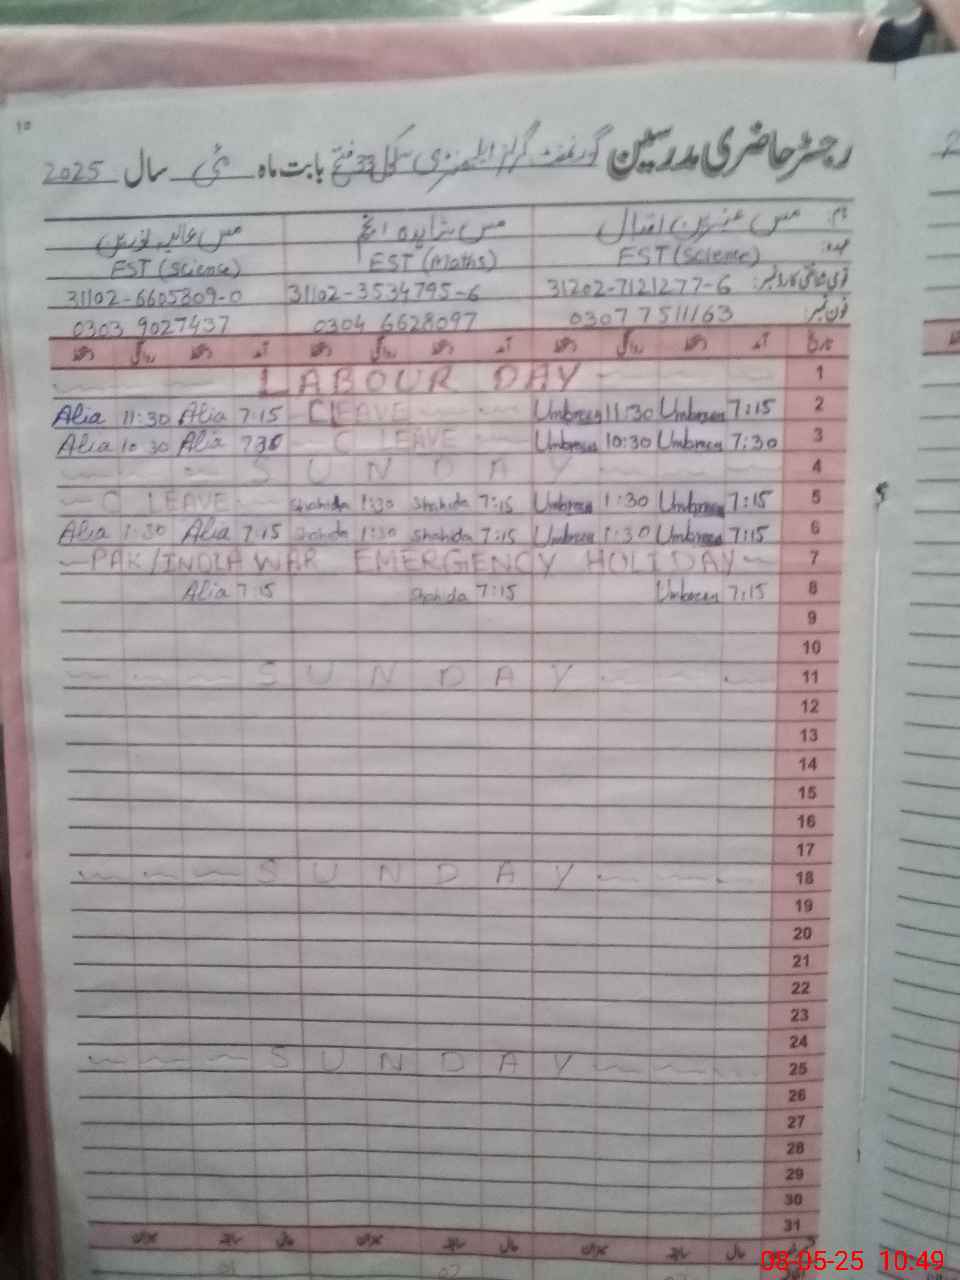 10
رجسٹر حاضری مدرسین گورنمنٹ گرلز ایلیمنٹری سکول 33 فتح بابت ماہ مئی سال 2025
نام: مس عنبرین اقبال مس شاہدہ انجم مس عالیہ نورین
عہدہ: EST (Science) EST (Maths) EST (Science)
قومی شناختی کارڈ نمبر: 31202-7121277-6 31102-3534795-6 31102-6605809-0
فون نمبر: 0307 7511163 0304 6628097 0303 9027437
تاریخ آمد دستخط روانگی دستخط آمد دستخط روانگی دستخط آمد دستخط روانگی دستخط
LABOUR DAY 1
Alia 11:30 Alia 7:15 C LEAVE Umbreen 11:30 Umbreen 7:15 2
Alia 10:30 Alia 7:30 C LEAVE Umbreen 10:30 Umbreen 7:30 3
SUNDAY 4
C LEAVE Shahida 1:30 Shahida 7:15 Umbreen 1:30 Umbreen 7:15 5
Alia 1:30 Alia 7:15 Shahida 1:30 Shahida 7:15 Umbreen 1:30 Umbreen 7:15 6
PAK/INDIA WAR EMERGENCY HOLIDAY 7
Alia 7:15 Shahida 7:15 Umbreen 7:15 8
9
10
SUNDAY 11
12
13
14
15
16
17
SUNDAY 18
19
20
21
22
23
24
SUNDAY 25
26
27
28
29
30
31
حال سابقہ میزان حال سابقہ میزان حال سابقہ میزان
01 02
08-05-25 10:49